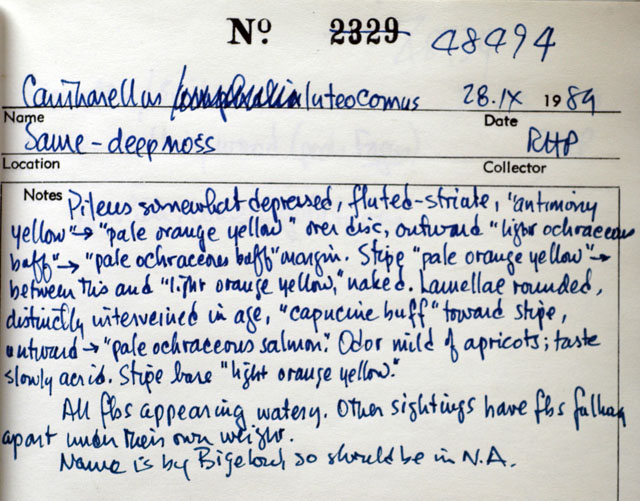 Nº 2329 48494
Cantharellus luteocomus 28.IX 1989
Name Date
Same - deep moss RHP
Location Collector
Notes Pileus somewhat depressed, fluted-striate, "antimony
yellow" → "pale orange yellow" over disc, outward "light ochraceous
buff" → "pale ochraceous buff" margin. Stipe "pale orange yellow" →
between this and "light orange yellow," naked. Lamellae rounded,
distinctly interveined in age, "capucine buff" toward stipe,
outward → "pale ochraceous salmon". Odor mild of apricots; taste
slowly acrid. Stipe base "light orange yellow."
All fbs appearing watery. Other sightings have fbs falling
apart under their own weight.
Name is by Bigelow, so should be in N.A.